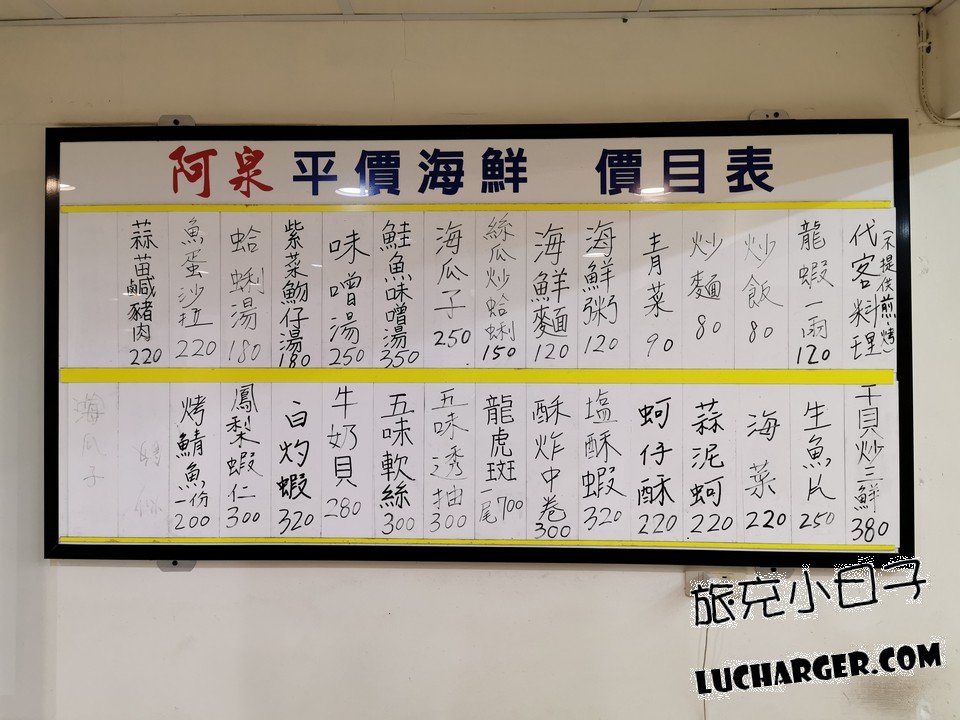 阿泉 平價海鮮 價目表
代客料理(不提供煎、烤)
龍蝦一隻120
炒飯80
炒麵80
青菜90
海鮮粥120
海鮮麵120
絲瓜炒蛤蜊150
海瓜子250
鮭魚味噌湯350
味噌湯250
紫菜魩仔湯180
蛤蜊湯180
魚蛋沙拉220
蒜苗鹹豬肉220
干貝炒三鮮380
生魚片250
海菜220
蒜泥蚵220
蚵仔酥220
塩酥蝦320
酥炸中卷300
龍虎斑一尾700
五味透抽300
五味軟絲300
牛奶貝280
白灼蝦320
鳳梨蝦仁300
烤鯖魚一份200
海瓜子
旅充小日子
LUCHARGER.COM